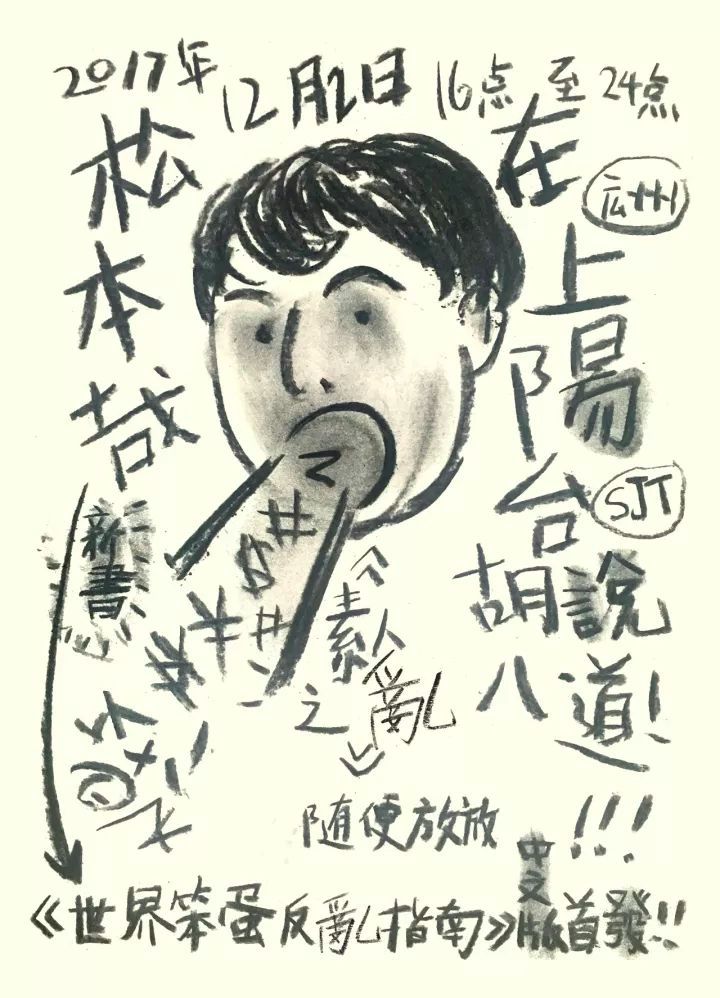 2017年 12月2日 16点 至 24点
松本哉
在
広州
上陽台
SJT
胡說八道!
新書
《素人之亂》
随便放放
!!!
《世界笨蛋反亂指南》中文版首發!!